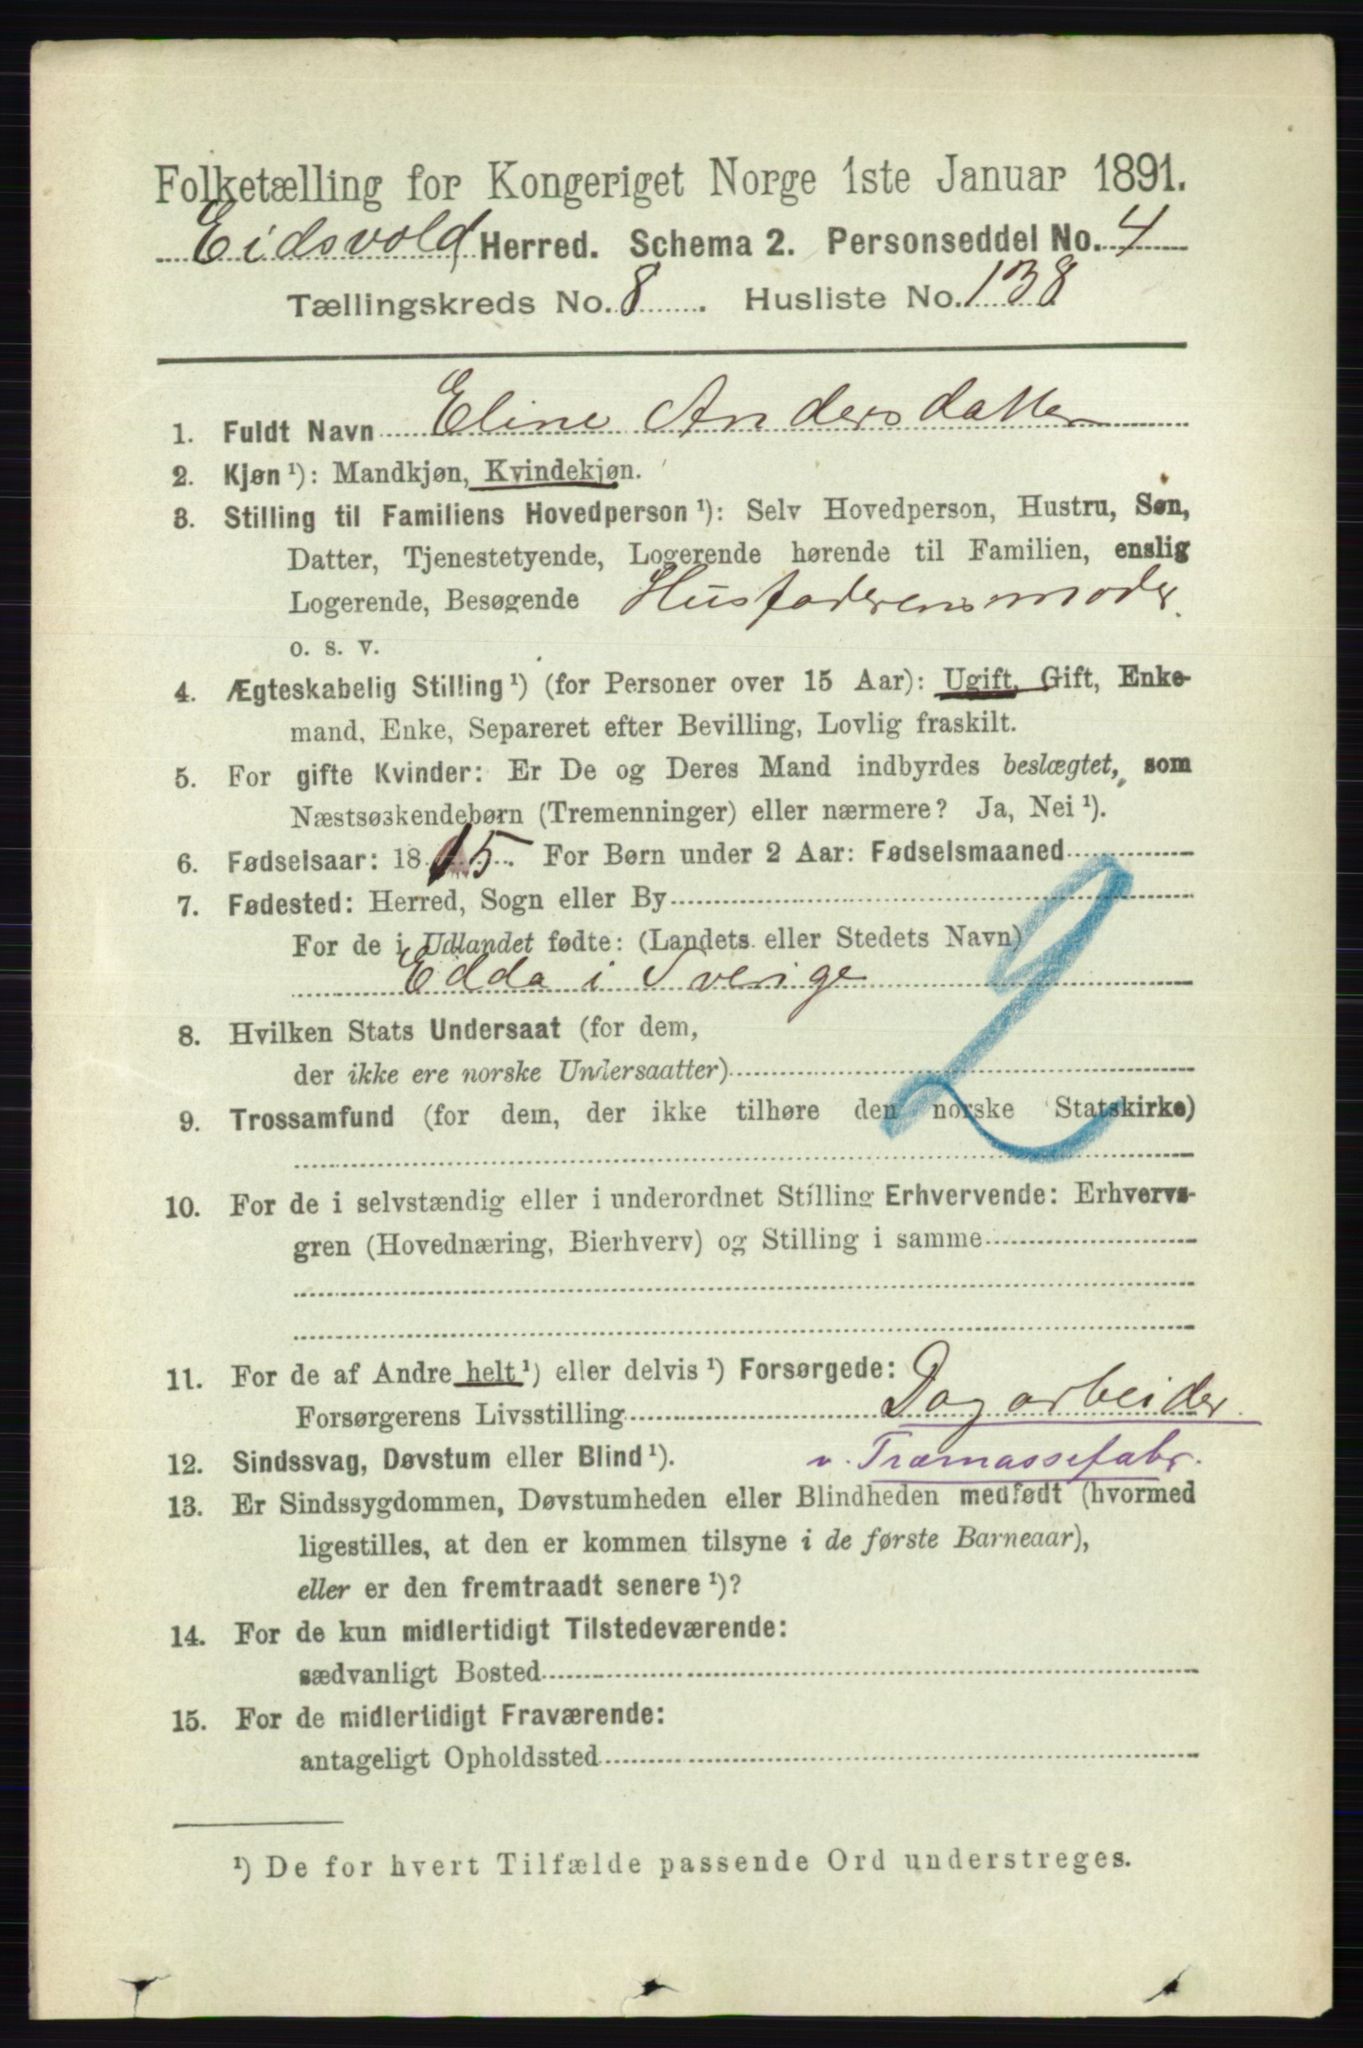 Folketælling for Kongeriget Norge 1ste Januar 1891.
Eidsvold Herred. Schema 2. Personseddel No. 4
Tællingskreds No. 8. Husliste No. 138
1. Fuldt Navn Eline Andersdatter
2. Kjøn ¹): Mandkjøn, Kvindekjøn.
3. Stilling til Familiens Hovedperson ¹): Selv Hovedperson, Hustru, Søn,
Datter, Tjenestetyende, Logerende hørende til Familien, enslig
Logerende, Besøgende Husfaderens moder.
o. s. v.
4. Ægteskabelig Stilling ¹) (for Personer over 15 Aar): Ugift, Gift, Enke-
mand, Enke, Separeret efter Bevilling, Lovlig fraskilt.
5. For gifte Kvinder: Er De og Deres Mand indbyrdes beslægtet, som
Næstsøskendebørn (Tremenninger) eller nærmere? Ja, Nei ¹).
6. Fødselsaar: 1815. For Børn under 2 Aar: Fødselsmaaned
7. Fødested: Herred, Sogn eller By
For de i Udlandet fødte: (Landets eller Stedets Navn)
Edda i Sverige
2
8. Hvilken Stats Undersaat (for dem,
der ikke ere norske Undersaatter)
9. Trossamfund (for dem, der ikke tilhøre den norske Statskirke)
10. For de i selvstændig eller i underordnet Stilling Erhvervende: Erhvervs-
gren (Hovednæring, Bierhverv) og Stilling i samme
11. For de af Andre helt ¹) eller delvis ¹) Forsørgede:
Forsørgerens Livsstilling Dagarbeider
12. Sindssvag, Døvstum eller Blind ¹). v. Træmassefabr.
13. Er Sindssygdommen, Døvstumheden eller Blindheden medfødt (hvormed
ligestilles, at den er kommen tilsyne i de første Barneaar),
eller er den fremtraadt senere ¹)?
14. For de kun midlertidigt Tilstedeværende:
sædvanligt Bosted
15. For de midlertidigt Fraværende:
antageligt Opholdssted
¹) De for hvert Tilfælde passende Ord understreges.